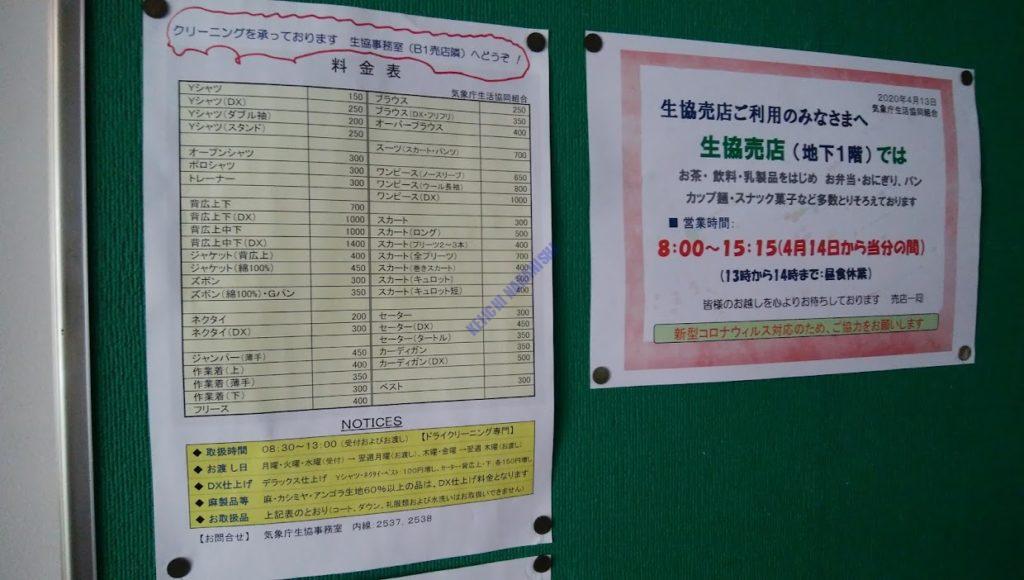 クリーニングを承っております 生協事務室(B1売店隣)へどうぞ!
料金表
気象庁生活協同組合
Yシャツ 150
Yシャツ(DX) 250
Yシャツ(ダブル袖) 200
Yシャツ(スタンド) 250
オープンシャツ 300
ポロシャツ 300
トレーナー 300
背広上下 700
背広上下(DX) 1000
背広上中下 1000
背広上中下(DX) 1400
ジャケット(背広上) 400
ジャケット(綿100%) 450
ズボン 300
ズボン(綿100%)・Gパン 350
ネクタイ 200
ネクタイ(DX) 300
ジャンパー(薄手) 450
作業着(上) 400
作業着(薄手) 350
作業着(下) 300
フリース 400
ブラウス 250
ブラウス(DX・フリフリ) 350
オーバーブラウス 400
スーツ(スカート・パンツ) 700
ワンピース(ノースリーブ) 650
ワンピース(ウール長袖) 800
ワンピース(DX) 1000
スカート 300
スカート(ロング) 500
スカート(プリーツ2~3本) 400
スカート(全プリーツ) 700
スカート(巻きスカート) 400
スカート(キュロット)
スカート(キュロット短) 400
セーター 300
セーター(DX) 450
セーター(タートル) 350
カーディガン 350
カーディガン(DX) 500
ベスト 300
NOTICES
◆ 取扱時間 08:30~13:00(受付およびお渡し) 【ドライクリーニング専門】
◆ お渡し日 月曜・火曜・水曜(受付) → 翌週月曜(お渡し)、木曜・金曜 →翌週 木曜(お渡し)
◆ DX仕上げ デラックス仕上げ Yシャツ・ネクタイ・ベスト:100円増し、セーター・背広上・下:各150円増し
◆ 麻製品等 麻・カシミヤ・アンゴラ生地60%以上の品は、DX仕上げ料金となります
◆ お取扱品 上記表のとおり(コート、ダウン、礼服類および水洗いはお取扱いできません)
【お問合せ】 気象庁生協事務室 内線:2537、2538
2020年4月13日
気象庁生活協同組合
生協売店ご利用のみなさまへ
生協売店(地下1階)では
お茶・飲料・乳製品をはじめ お弁当・おにぎり、パン
カップ麺・スナック菓子など多数とりそろえております
■ 営業時間:
8:00~15:15(4月14日から当分の間)
(13時から14時まで:昼食休業)
皆様のお越しを心よりお待ちしております 売店一同
新型コロナウィルス対応のため、ご協力をお願いします